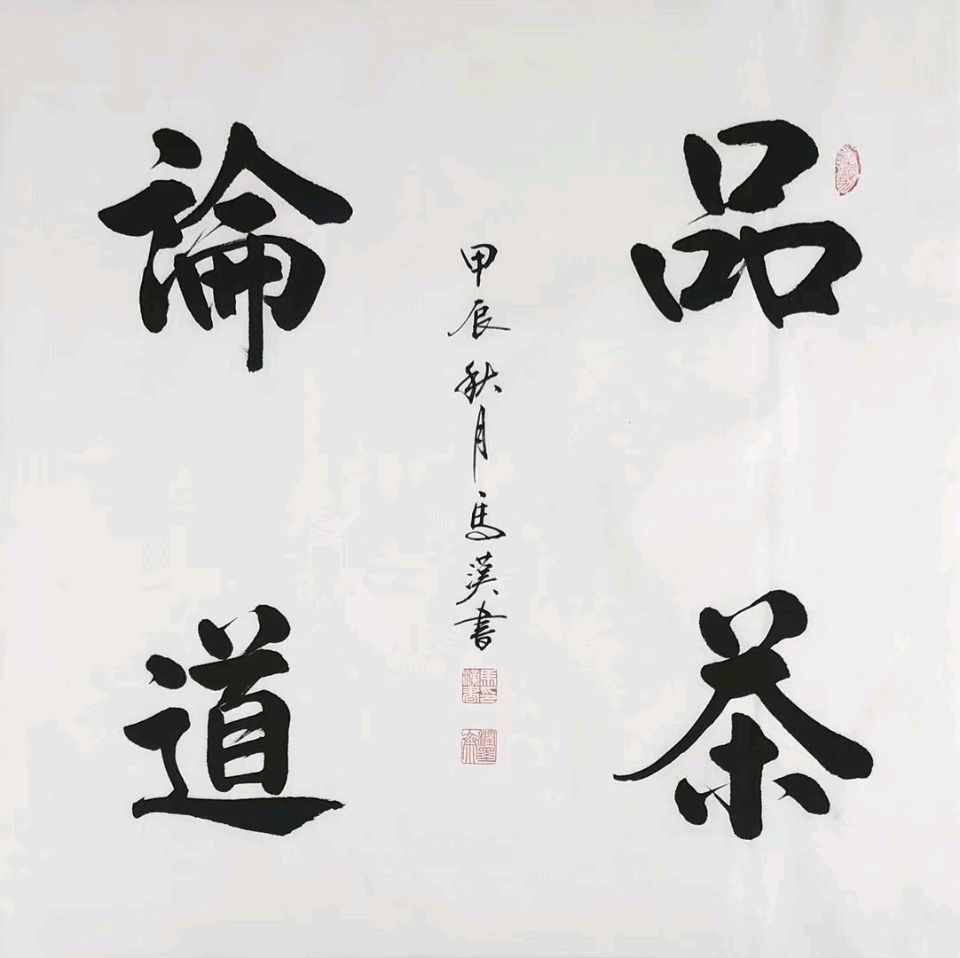 品茶
甲辰秋月馬漢書
論道